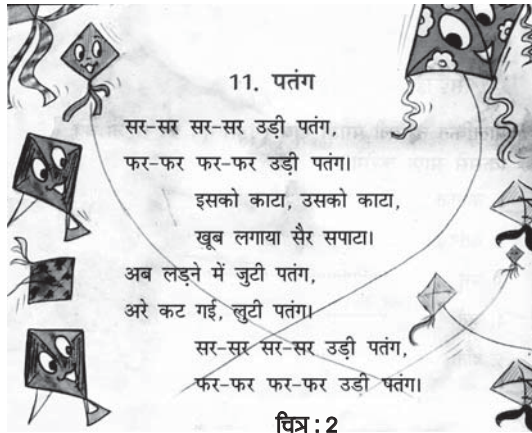 11. पतंग
सर-सर सर-सर उड़ी पतंग,
फर-फर फर-फर उड़ी पतंग।
इसको काटा, उसको काटा,
खूब लगाया सैर सपाटा।
अब लेड़ने में जुटी पतंग,
अरे कट गई, लुटी पतंग।
सर-सर सर-सर उड़ी पतंग,
फर-फर फर-फर उड़ी पतंग।
चित्र : 2